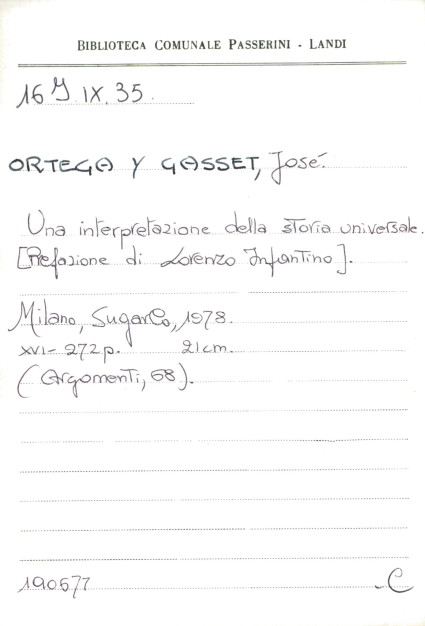 BIBLIOTECA COMUNALE PASSERINI - LANDI
16 Y IX. 35.
ORTEGA Y GASSET, José.
Una interpretazione della storia universale.
[Prefazione di Lorenzo Infantino].
Milano, SugarCo, 1978.
XVI-272 p. 21 cm.
(Argomenti, 68).
190677
-C